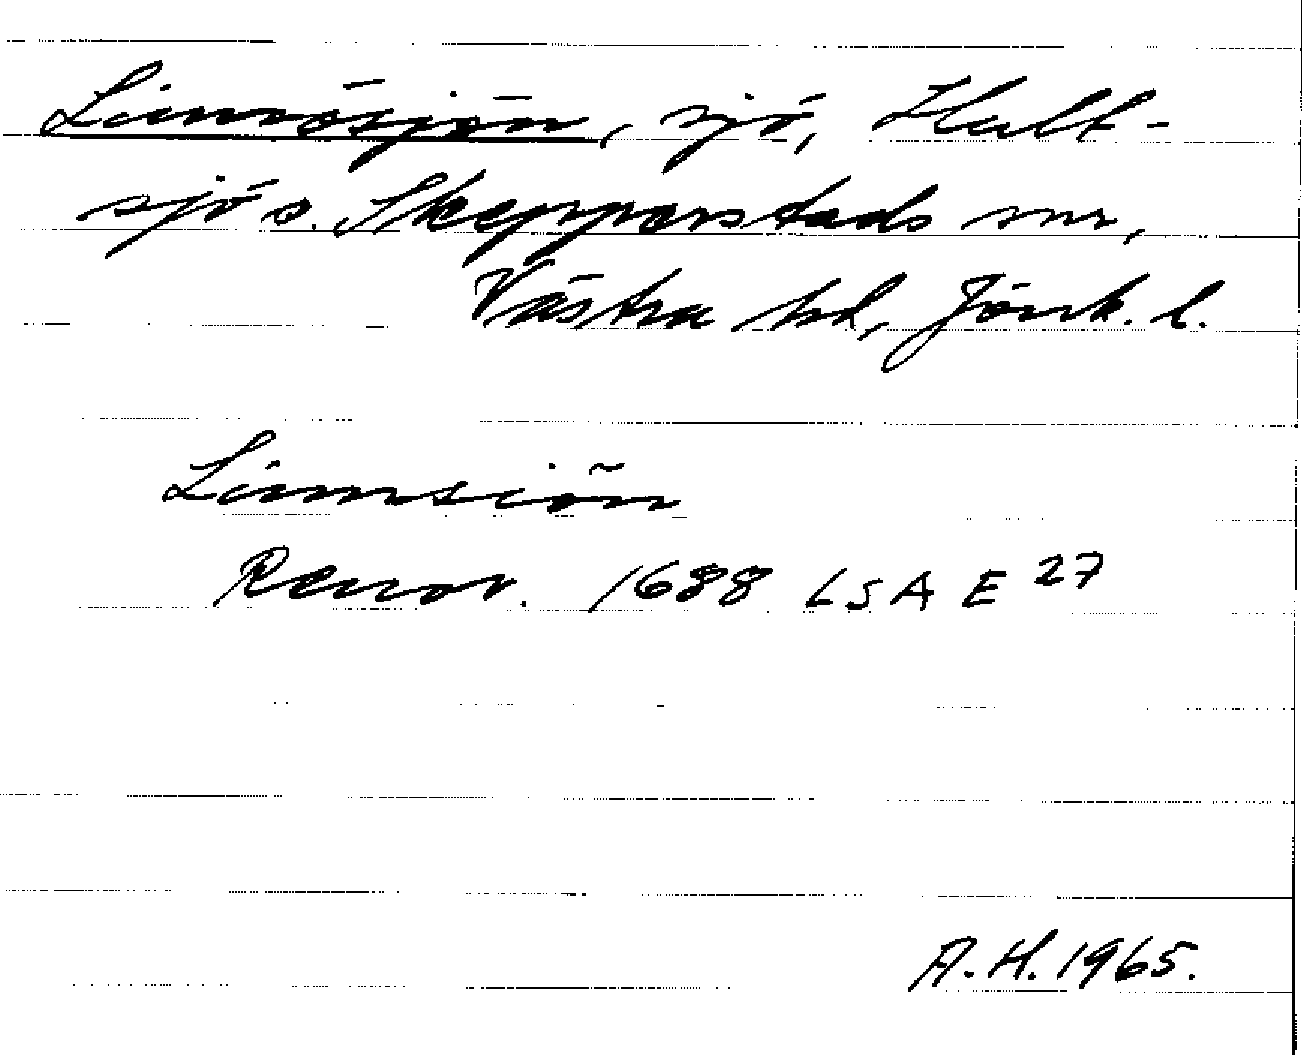 Linnösjön, sjö, Hult-
sjö o. Skepparstads snr,
Västra hd, Jönk. l.
Linnsiön
Renov. 1688 LSA E 27
A.H. 1965.